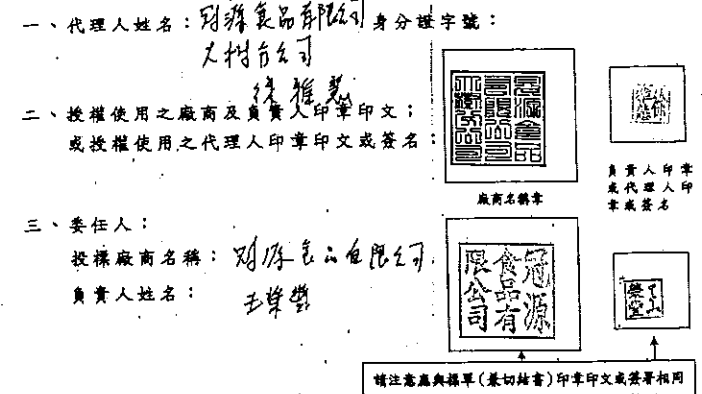 一、代理人姓名：冠源食品有限公司身分證字號：
大樹分公司
徐雅慧
二、授權使用之廠商及負責人印章印文；
或授權使用之代理人印章印文或簽名：
廠商名稱章
負責人印章
或代理人印
章或簽名
三、委任人：
投標廠商名稱：冠源食品有限公司
負責人姓名：
冠源
食品有
限公司
請注意應與標單(兼切結書)印章印文或簽署相同